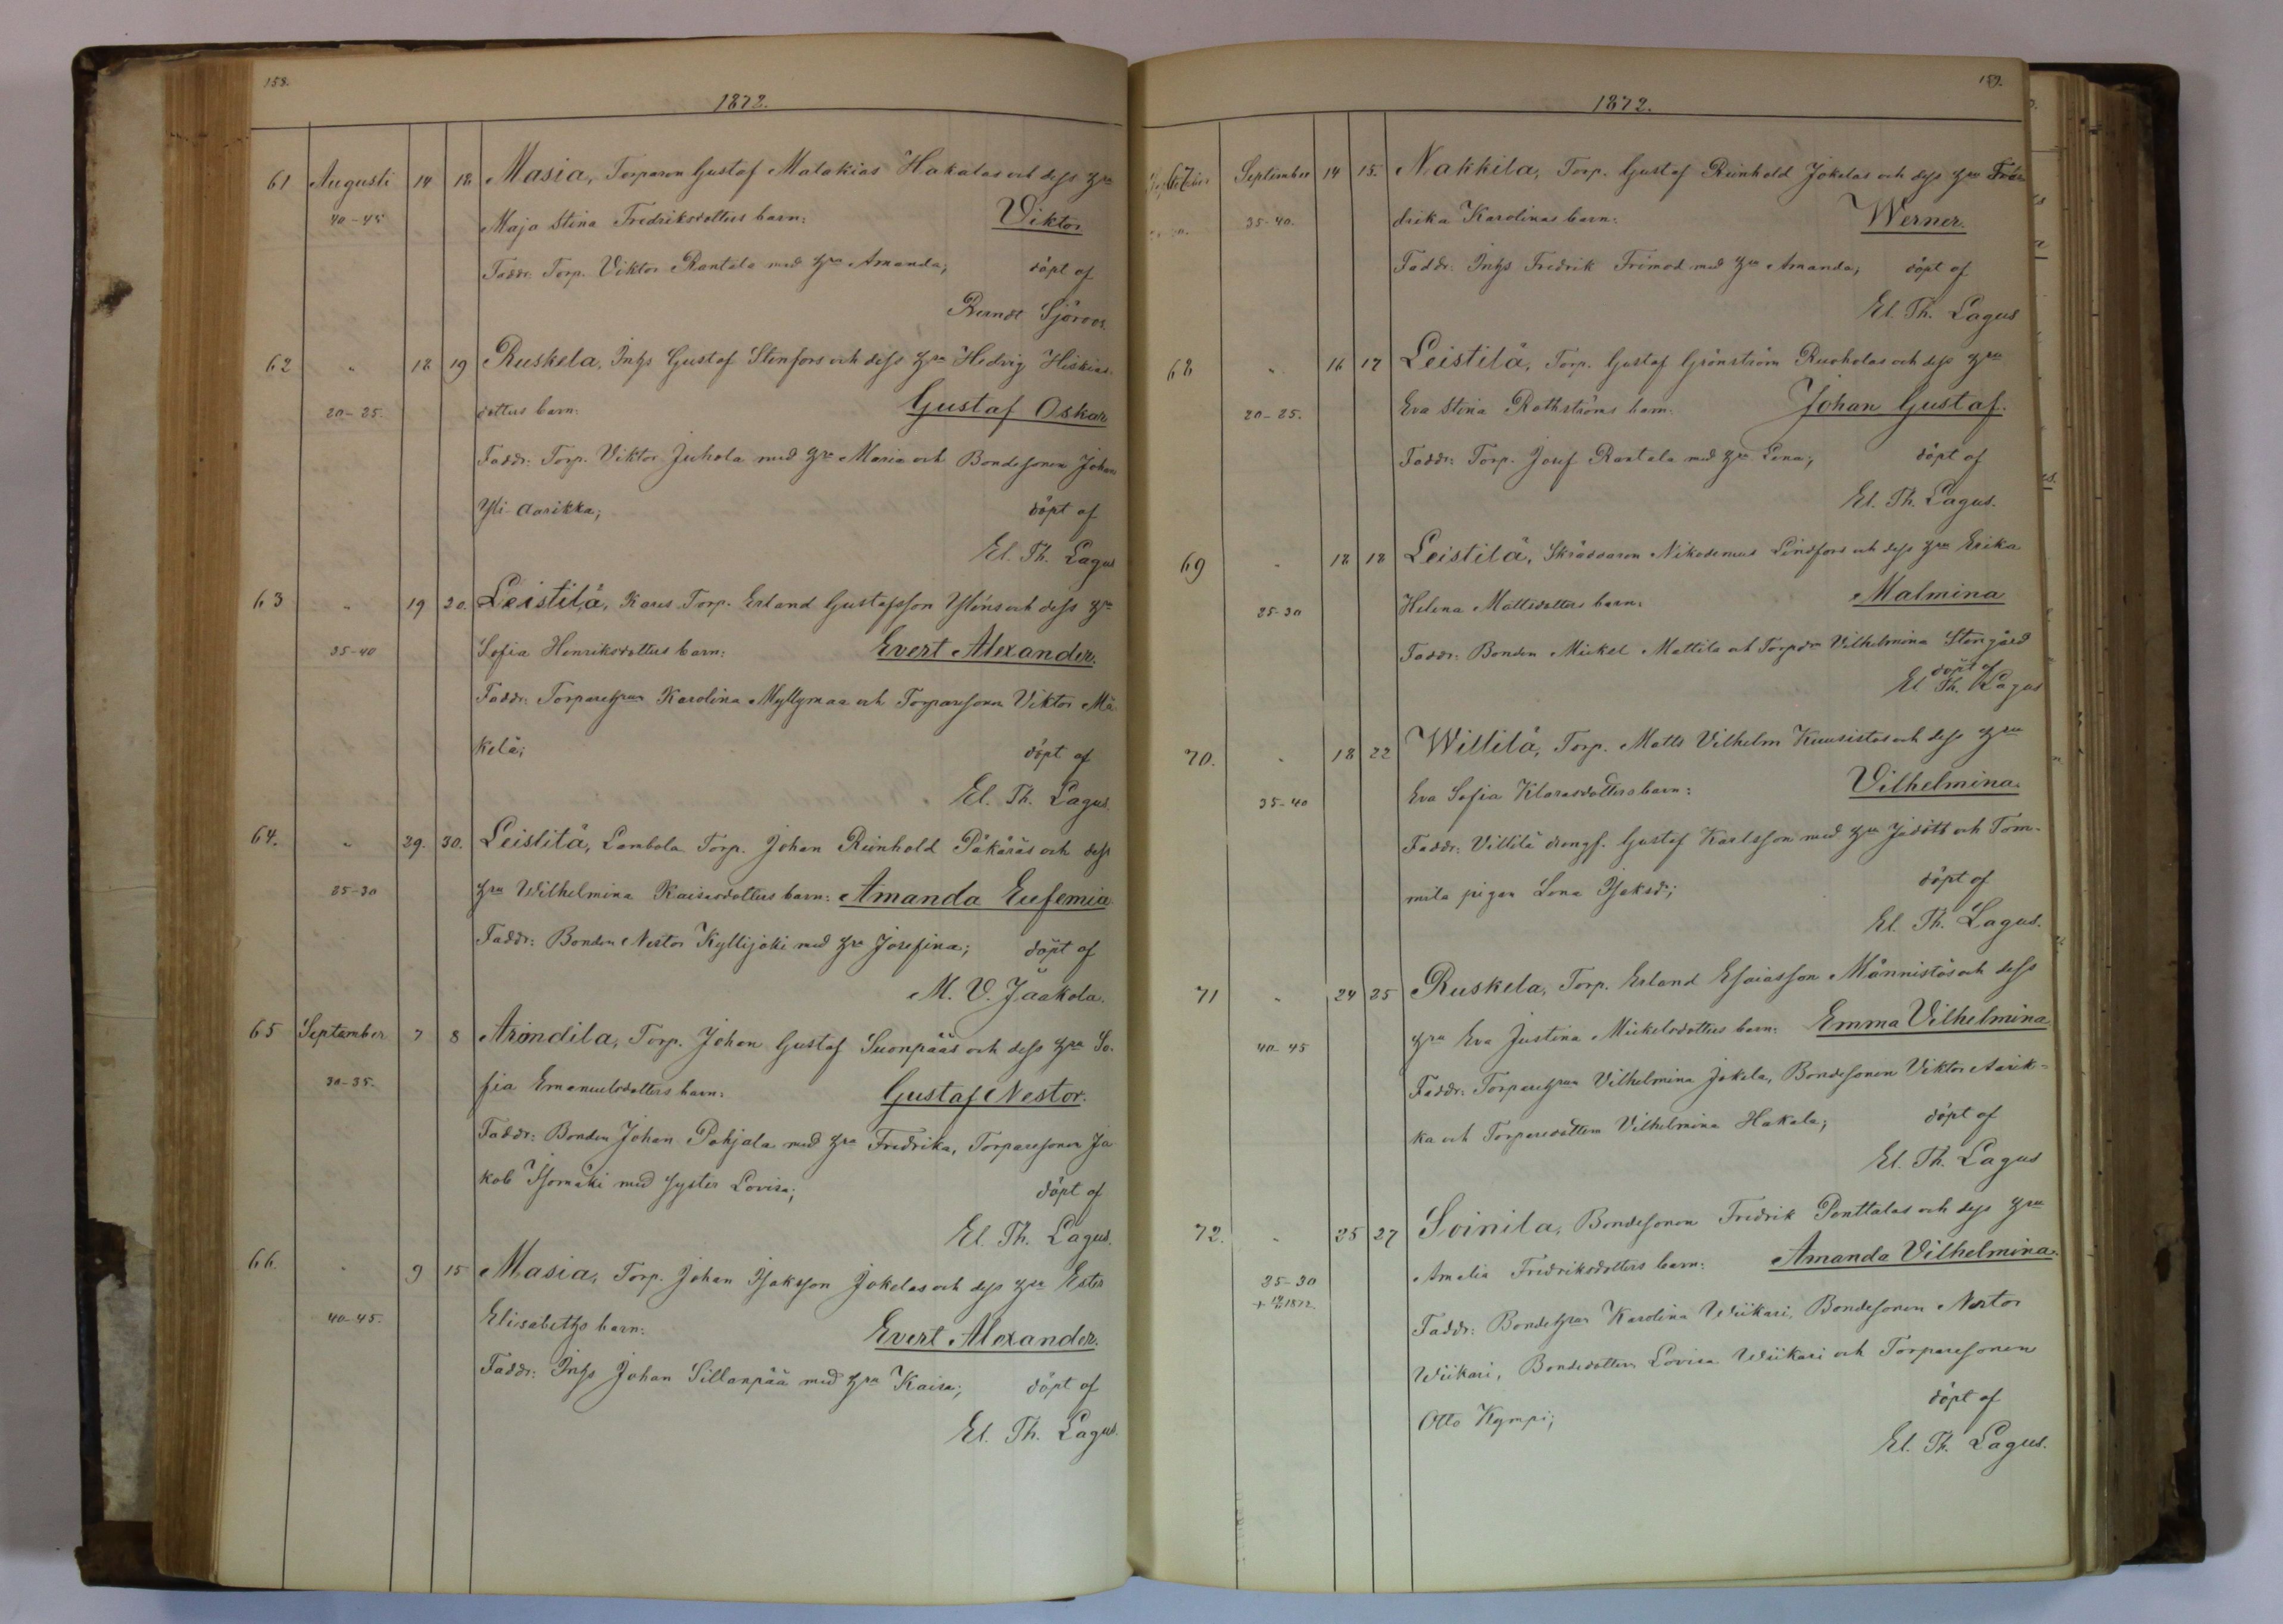 158.
1872.
61 Augusti 14 18 Masia, Torparen Gustaf Malakias Hakalas och dess hru
40-45 Maja Stina Fredriksdotters barn: Viktor
Faddr: Torp. Viktor Rantala med hru Amanda; döpt af
Berndt Sjöroos.
62 " 18 19 Ruskela, Inhs Gustaf Stenfors och dess hru Hedvig Hiskias
20-25. dotters barn: Gustaf Oskar
Faddr: Torp. Viktor Juhola med hru Maria och Bondesonen Johan
Yli-Aarikka; döpt af
El. Th. Lagus
63 " 19 20. Leistilä, Torp. Erland Gustafsson och dess hru
35-40 Sofia Henriksdotters barn: Evert Alexander.
Faddr: Torparehrun Karolina Myllymaa och Torparesonen Viktor Mä-
kelä; döpt af
El. Th. Lagus.
64. " 29. 30. Leistilä, Lambola Torp. Johan Reinhold Päkäräs och dess
25-30 hru Wilhelmina Kaisasdotters barn: Amanda Eufemia
Faddr: Bonden Nestor Kyllijoki med hru Josefina; döpt af
M. V. Jaakola.
65 September 7 8 Arondila, Torp. Johan Gustaf Suonpääs och dess hru So-
30-35. fia Emanuelsdotters barn: Gustaf Nestor.
Faddr: Bonden Johan Pohjala med hru Fredrika, Torparesonen Ja
kob Isomäki med syster Lovisa; döpt af
El. Th. Lagus.
66. " 9 15 Masia, Torp. Johan Isaksson Jokelas och dess hru Ester
40-45. Elisabeths barn: Evert Alexander.
Faddr: Inhs Johan Sillanpää med hru Kaisa; döpt af
El. Th. Lagus.
159.
1872.
67 September 14 15. Nakkila, Torp. Gustaf Reinhold Jokelas och dess hru Fre
35-40. drika Karolinas barn: Werner.
Faddr: Inhs Fredrik Frimod med hru Amanda; döpt af
El. Th. Lagus
68 " 16 17 Leistilä, Torp. Gustaf Grönström Ruoholas och dess hru
20-25. Eva Stina Rothströms barn: Johan Gustaf.
Faddr: Torp. Josef Rantala med hru Lena; döpt af
El. Th. Lagus.
69 " 18 18 Leistilä, Skräddaren Nikodemus Lindfors och dess hru Erika
25-30 Helena Mattsdotters barn: Malmina
Faddr: Bonden Mickel Mattila och Torpdr Vilhelmina Stengård
döpt af
El. Th. Lagus
70. " 18 22 Willilä, Torp. Matts Vilhelm Kuusistos och dess hru
35-40 Eva Sofia Klarasdotters barn: Vilhelmina.
Faddr: Villilä drengf. Gustaf Karlsson med hru Judith och Tom-
mila pigan Lena Isaksd; döpt af
El. Th. Lagus.
71 " 24 25 Ruskela, Torp. Erland Esaiasson Männistös och dess
40-45 hru Eva Justina Mickelsdotters barn: Emma Vilhelmina
Faddr: Torparehrun Vilhelmina Jokela, Bondesonen Viktor Aarik-
ka och Torparedottern Vilhelmina Hakala; döpt af
El. Th. Lagus
72. " 25 27 Soinila, Bondesonen Fredrik Penttalas och dess hru
25-30 Amalia Fredriksdotters barn: Amanda Vilhelmina.
Faddr: Bondehrun Karolina Wiikari, Bondesonen Nestor
Wiikari, Bondedottern Lovisa Wiikari och Torparesonen
Otto Kympi; döpt af
El. Th. Lagus.